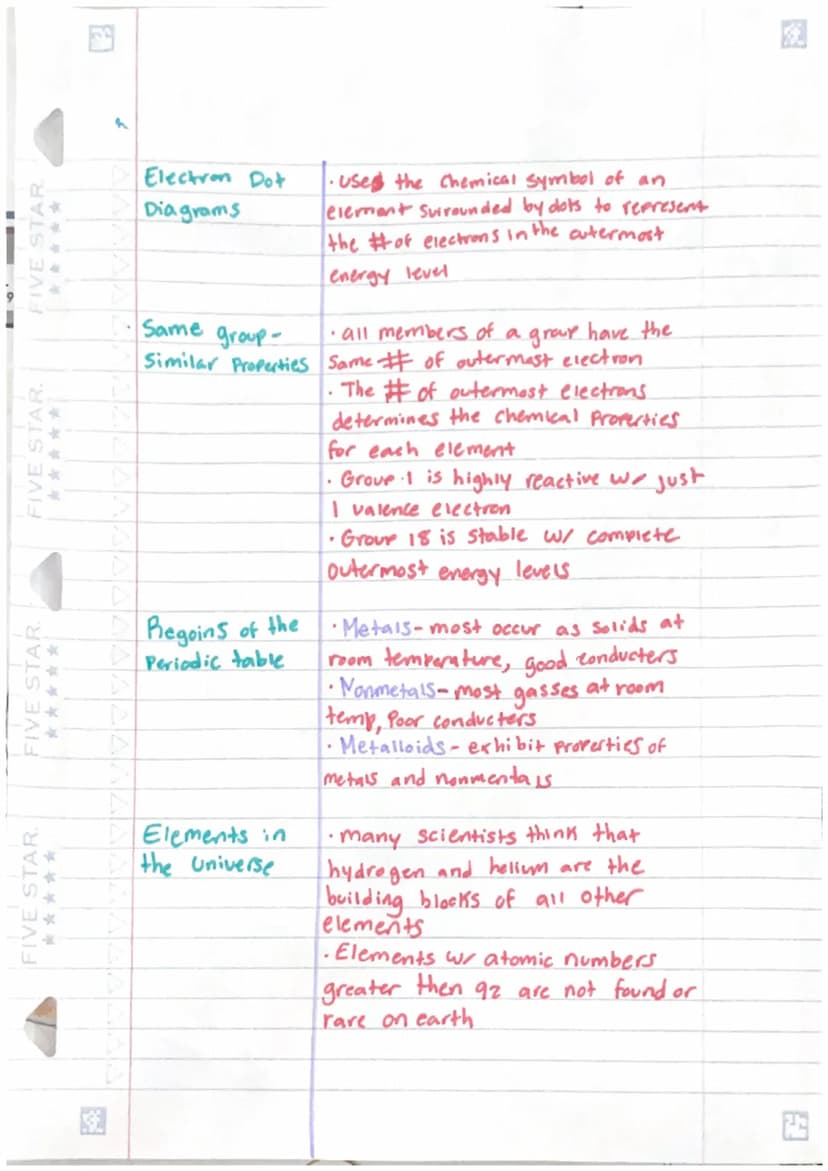 Electron Dot
Diagrams
· uses the chemical symbol of an
element surrounded by dots to represent
the # of electrons in the outermost
energy level
· Same group -
Similar Properties
· all members of a group have the
same # of outermost electron
· The # of outermost electrons
determines the chemical properties
for each element
· Group 1 is highly reactive w/ just
1 valence electron
· Group 18 is stable w/ complete
outermost energy levels
Regoins of the
Periodic table
· Metals - most occur as solids at
room temperature, good conducters
· Nonmetals - most gasses at room
temp, Poor conducters
· Metalloids - exhibit properties of
metals and nonmentals
Elements in
the universe
· many scientists think that
hydrogen and helium are the
building blocks of all other
elements
· Elements w/ atomic numbers
greater then 92 are not found or
rare on earth
FIVE STAR.
FIVE STAR.
FIVE STAR.
FIVE STAR.
9